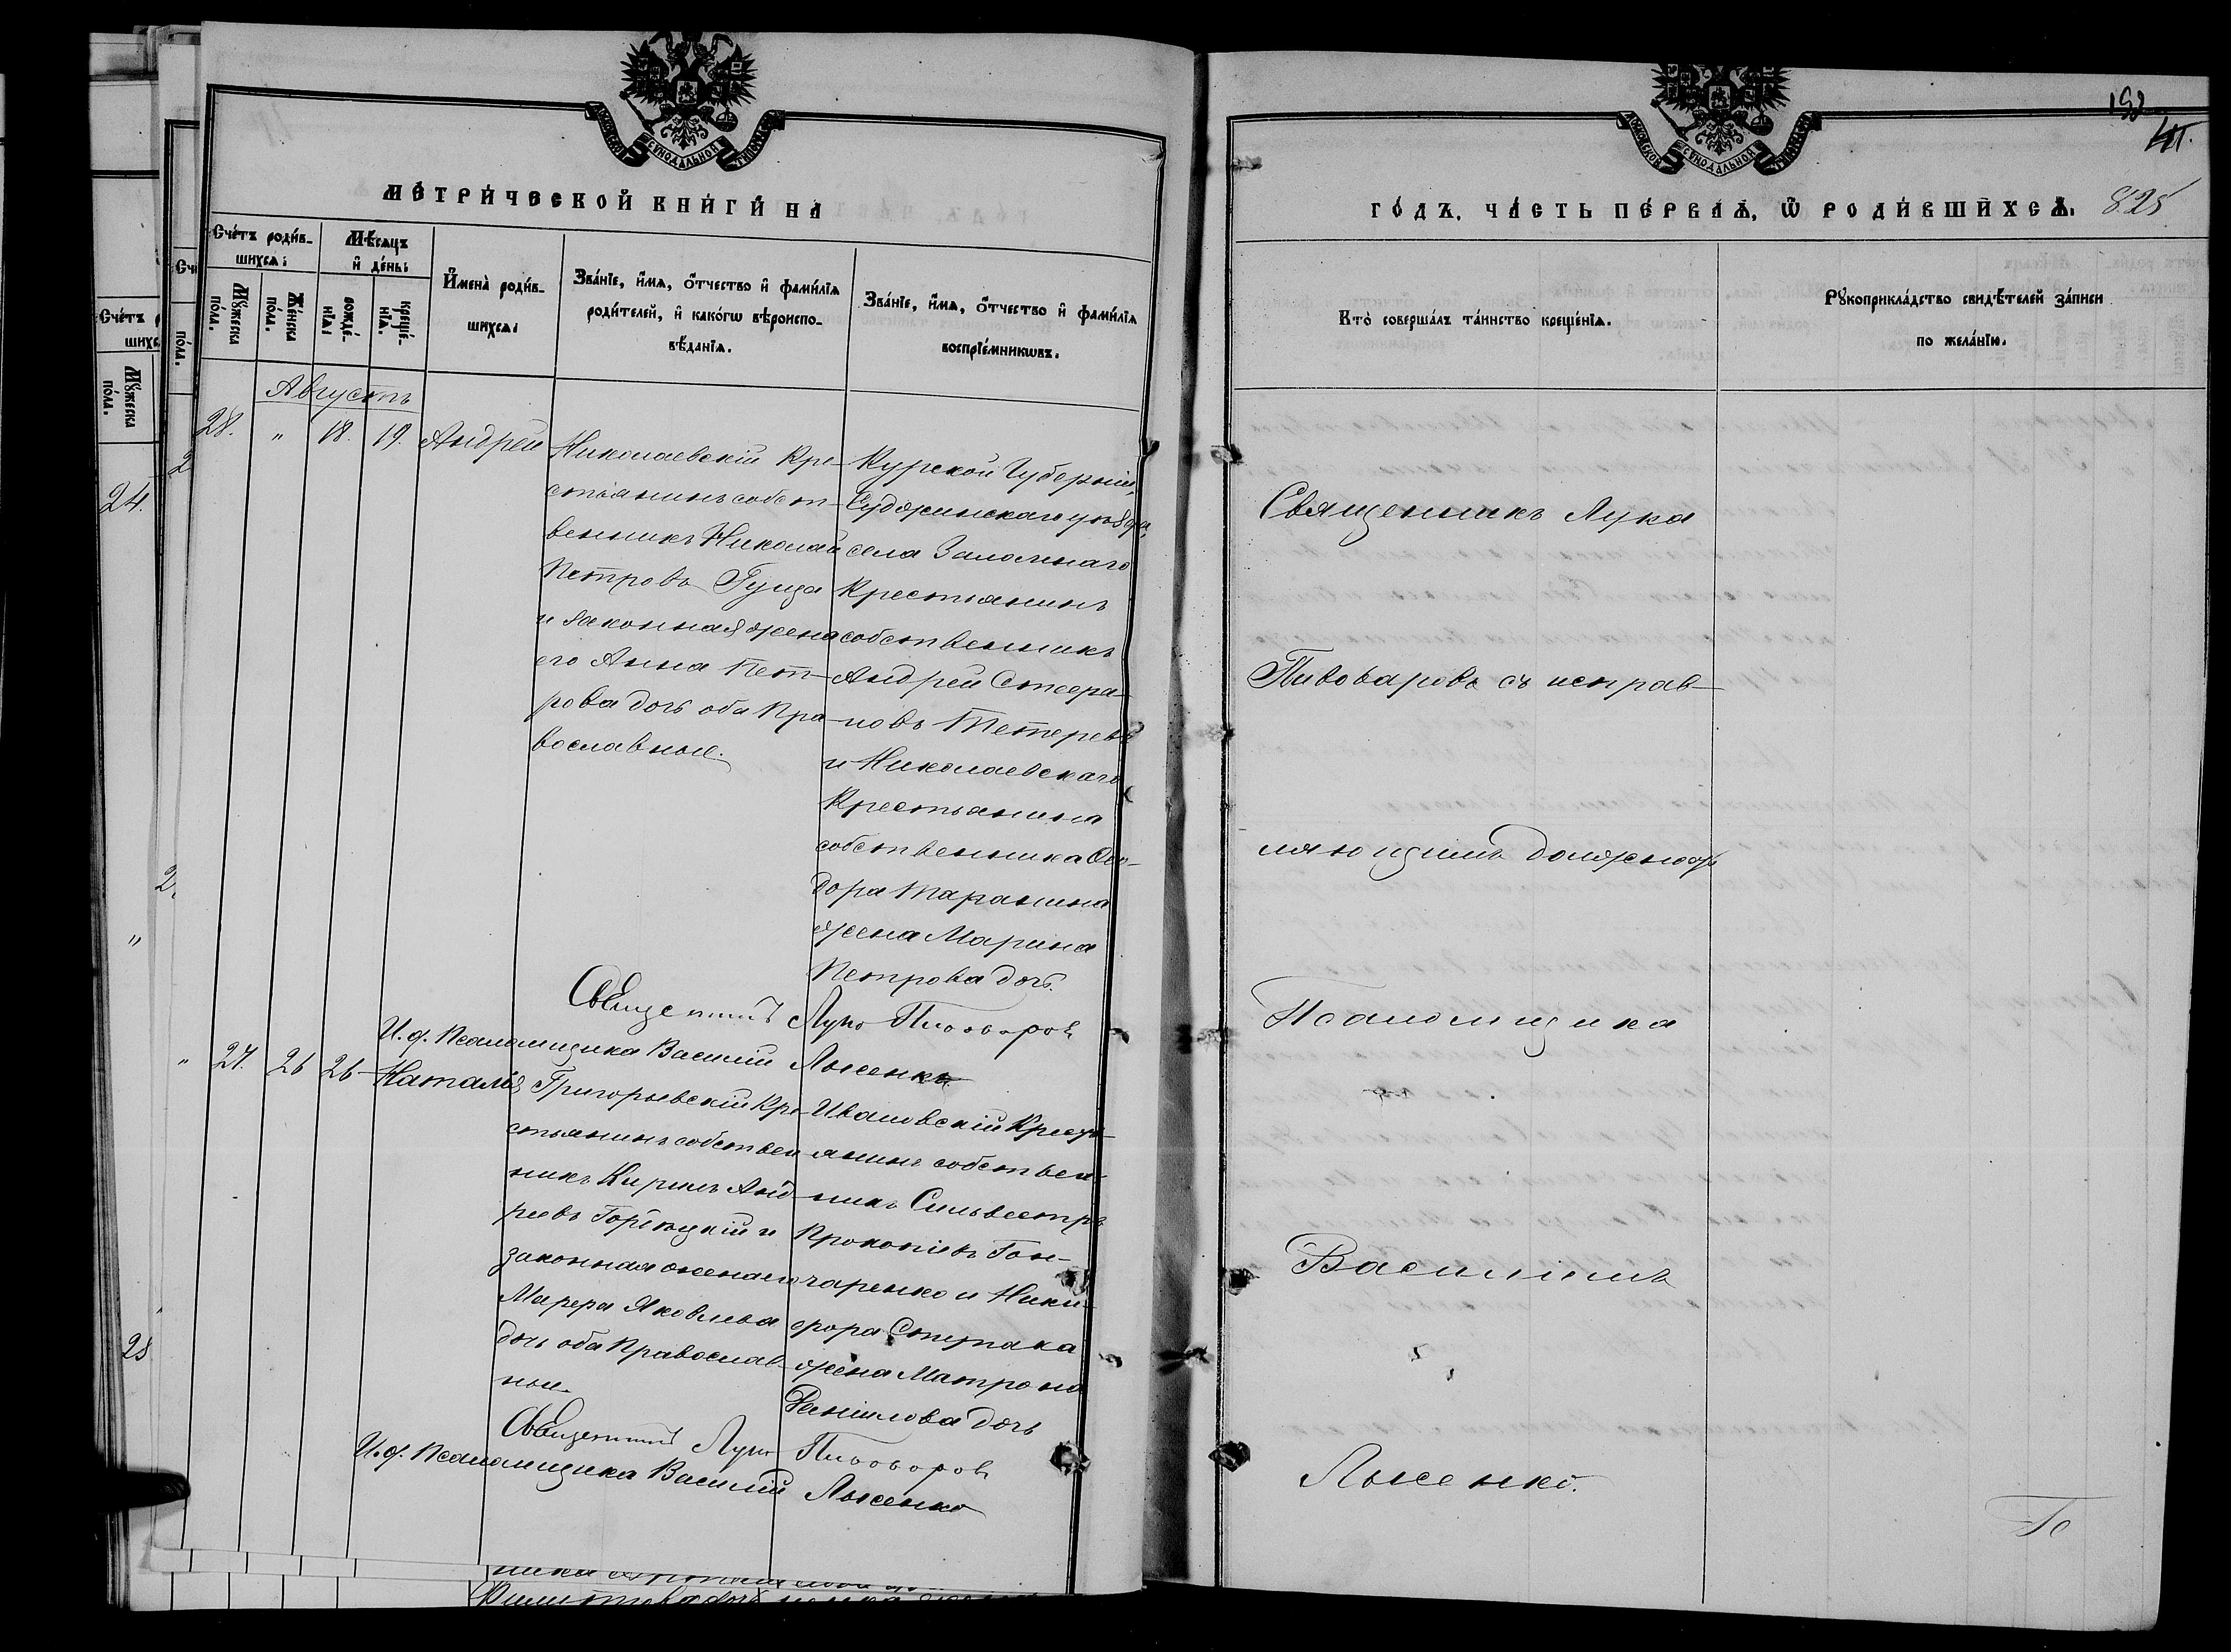 МОСКОВСКОЙ СѴНОДАЛЬНОЙ ТИПОГРАФІИ
МЕТРИ́ЧЕСКОЙ КНИ́ГИ НА
Сче́тъ роди́вшихсѧ:
Мꙋ́жеска по́ла.
Же́нска по́ла.
Мѣ́сѧцъ и҆ де́нь:
рожде́нїѧ:
креще́нїѧ.
И҆мена̀ роди́вшихсѧ:
Зва́нїе, и҆́мѧ, ѻ҆́тчество и҆ фами́лїѧ
роди́телей, и҆ како́гѡ вѣроиспо-
вѣ́данїѧ.
Зва́нїе, и҆́мѧ, ѻ҆́тчество и҆ фами́лїѧ
воспрїе́мникѡвъ.
Августъ
28. " 18. 19. Андрей
Николаевскій Кре-
стьянинъ собст-
венникъ Николай
Петровъ Гуща
и законная жена
его Анна Пет-
рова дочь оба Пра-
вославные.
Курской Губерніи,
Суджинскаго уѣзда,
села Заломнаго
Крестьянинъ
собственникъ
Андрей Стефа-
новъ Тетеревъ
и Николаевскаго
Крестьянина
собственника Ѳео-
дора Таранина
жена Марина
Петрова дочь.
Священникъ Лука Пивоваровъ
И. д. Псаломщика Василій Лысенко
" 27. 26 26 Наталія
Григорьевскій Кре-
стьянинъ собствен
никъ Кирилъ Анд-
реевъ и
законная жена его
Марфа Яковлева
дочь оба Православ-
ные.
Ивановскій Кресть-
янинъ собствен-
никъ Сильвестръ
Прокопіевъ Гон-
чаренко и Ники-
фора Ступака
жена Матрона
Даніилова дочь
Священникъ Лука Пивоваровъ
И. д. Псаломщика Василій Лысенко
24.
"
28
198
МОСКОВСКОЙ СѴНОДАЛЬНОЙ ТИПОГРАФІИ
ГО́ДЪ. ЧА́СТЬ ПЕ́РВАѦ, Ѡ҆ РОДИ́ВШИХСѦ. 825
Кто̀ соверша́лъ та́инство креще́нїѧ.
Рꙋкоприкла́дство свидѣ́телей за́писи
по жела́нїю.
Священникъ Лука
Пивоваровъ съ исправ-
ляющимъ должность
Псаломщика
Василіемъ
Лысенко.